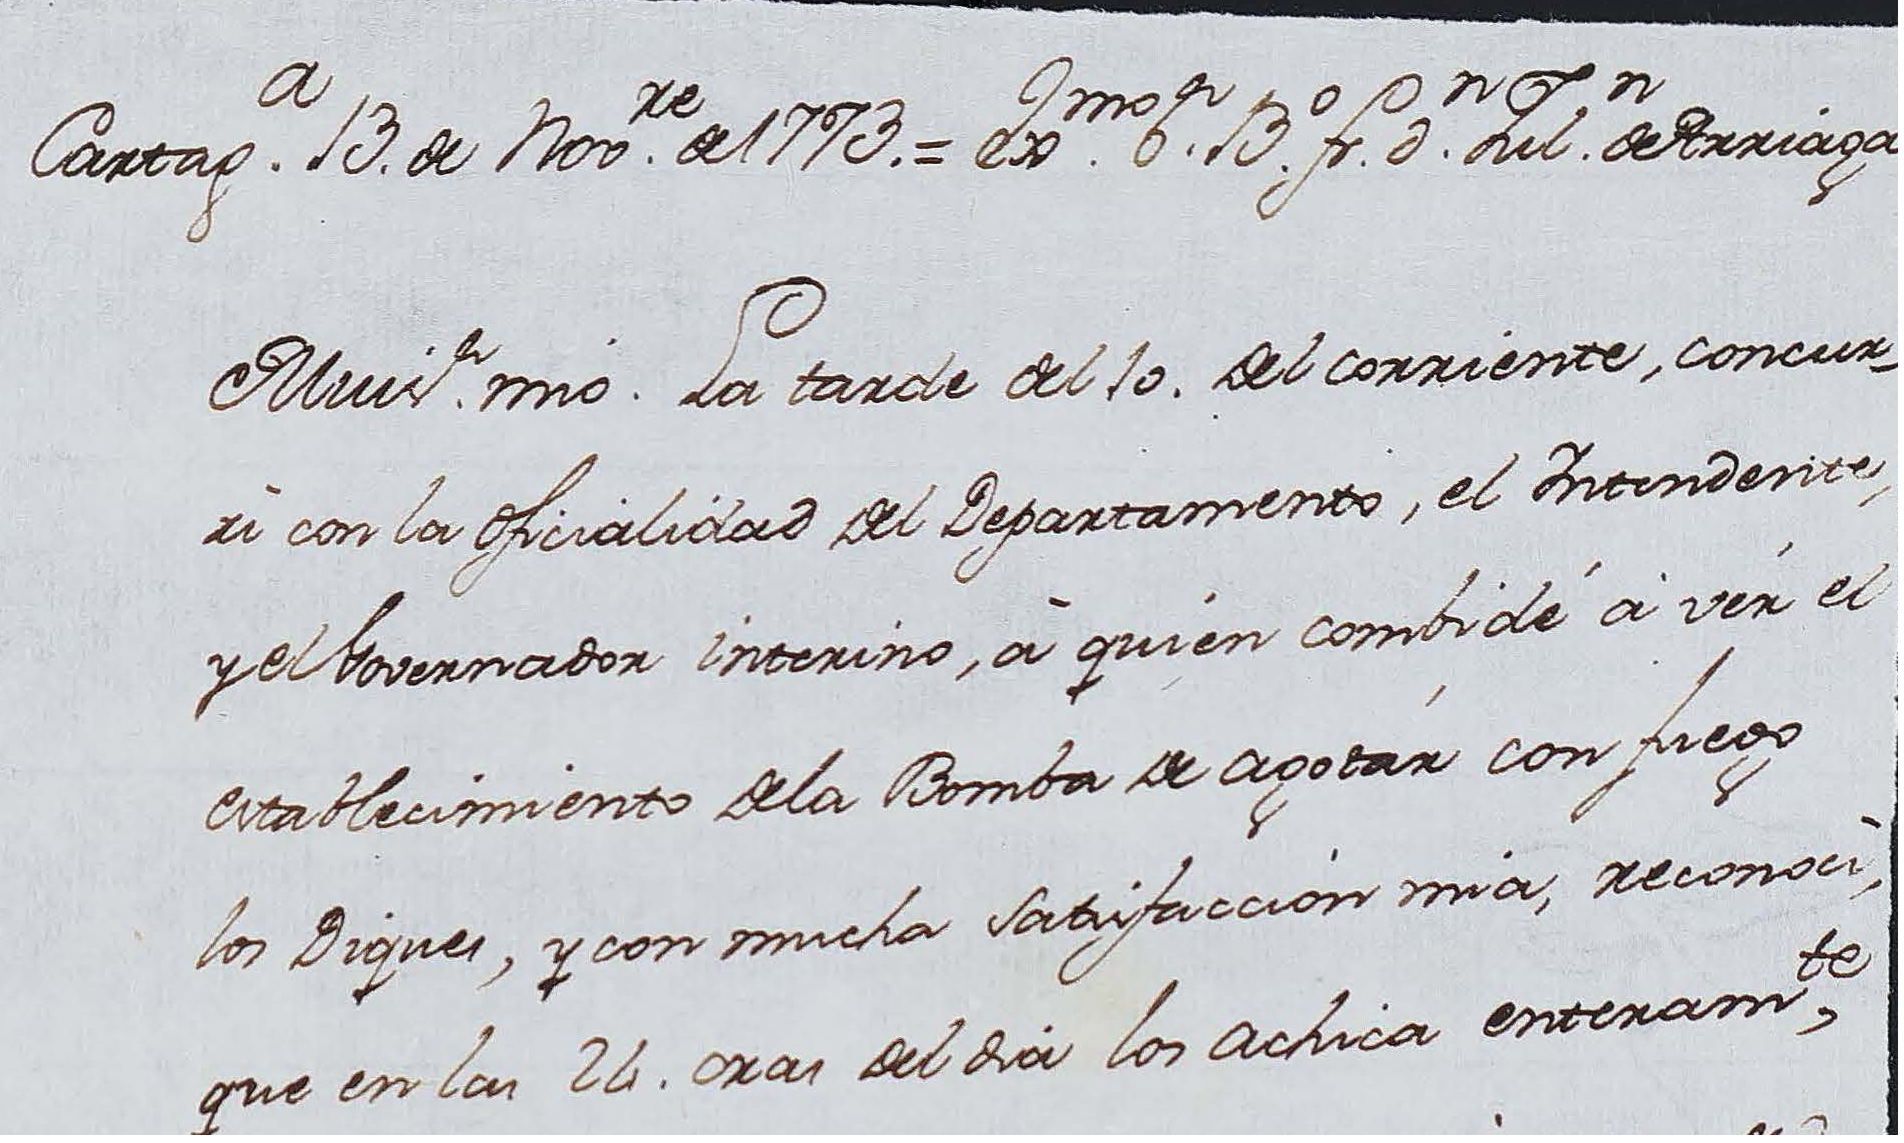 Cartag.ª 13. de Nov.re de 1773. = Exmo. Sr. B.º fr. Dn. Jul.n de Arriaga
Mui Sr. mio. La tarde del 10. del corriente, concur-
rì con la oficialidad del Departamento, el Intendente,
y el Governador interino, à quien combidé à vér el
establecimiento dela Bomba de agotár con fuego
los Diques, y con mucha satisfaccion mia, reconocì,
que en las 24. oras del dia los achica enteramte,